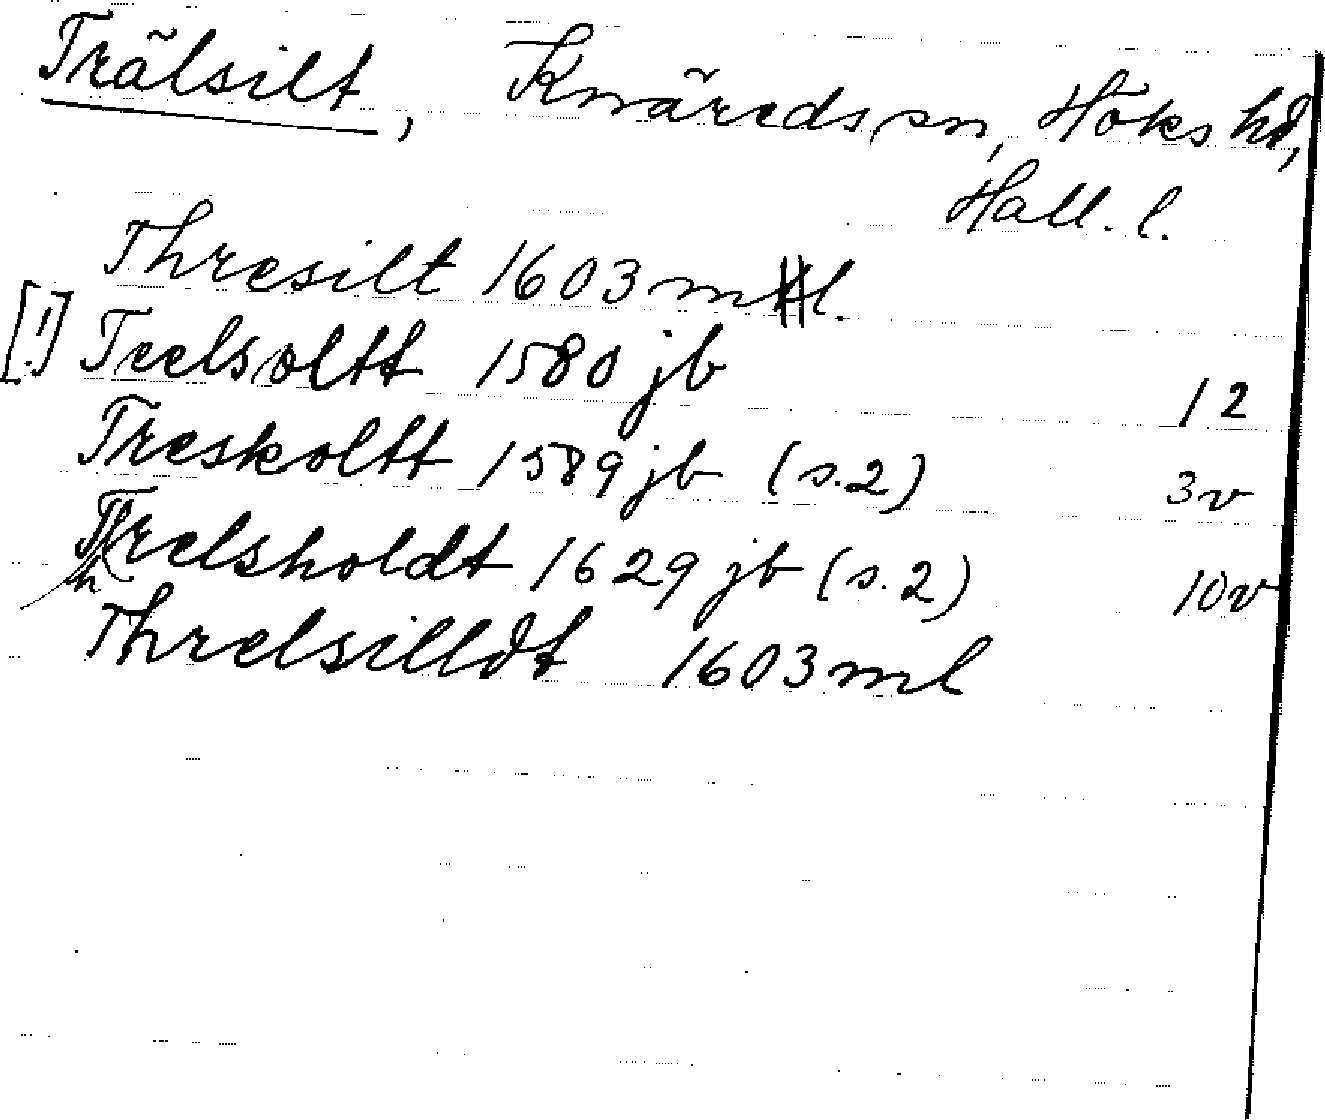 Trälsilt, Knäreds sn, Höks hd,
Hall. l.
Thresilt 1603 ml.
[!] Teelsoltt 1580 jb 12
Treskoltt 1589 jb (s.2) 3v
Threlsholdt 1629 jb (s.2) 10v
Threlsilldt 1603 ml